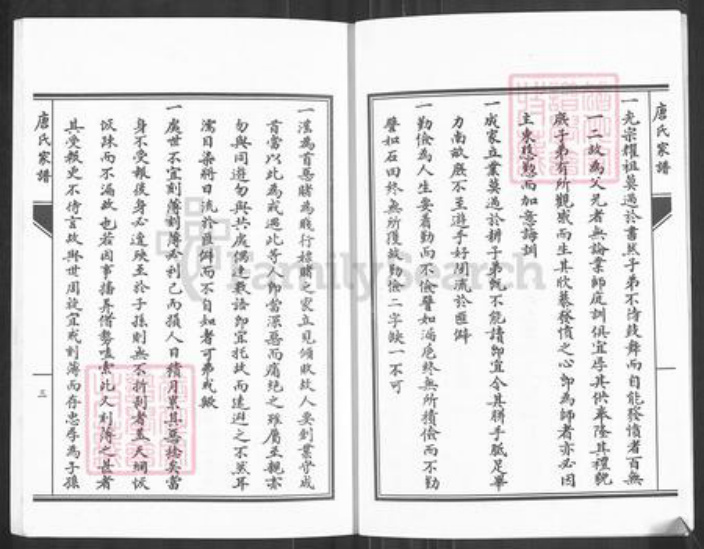 唐氏家譜
一光宗耀祖莫過於書然子弟不待鼓舞而自能發憤者百無
一二故為父兄者無論業師庭訓俱宜厚其供奉隆其禮貌
庶子弟有所觀感而生其欣慕發憤之心即為師者亦必因
主東慇懃而加意誨訓
一成家立業莫過於耕子弟既不能讀即宜令其胼手胝足畢
力南畝庶不至遊手好閒流於匪僻
一勤儉為人生要着勤而不儉譬如漏卮終無所積儉而不勤
譬如石田終無所獲故勤儉二字缺一不可
一淫為首惡賭為賤行嫖賭之家立見傾敗故人要創業守成
首當以此為戒遇此等人即當深惡而痛絕之雖屬至親亦
勿與同遊勿與共處偶遇數語即宜托故而遠避之不然耳
濡目染將日流於匪僻而不自知者可弗戒歟
一處世不宜刻薄刻薄必利己而損人日積月累其惡稔矣當
身不受報後身必遭殃至於子孫則無不折剥者蓋天網恢
恢疎而不漏故也若因事播弄借勢嗑索此又刻薄之甚者
其受報更不待言故與世周旋宜戒刻薄而存忠厚為子孫
唐氏家譜
三
FamilySearch